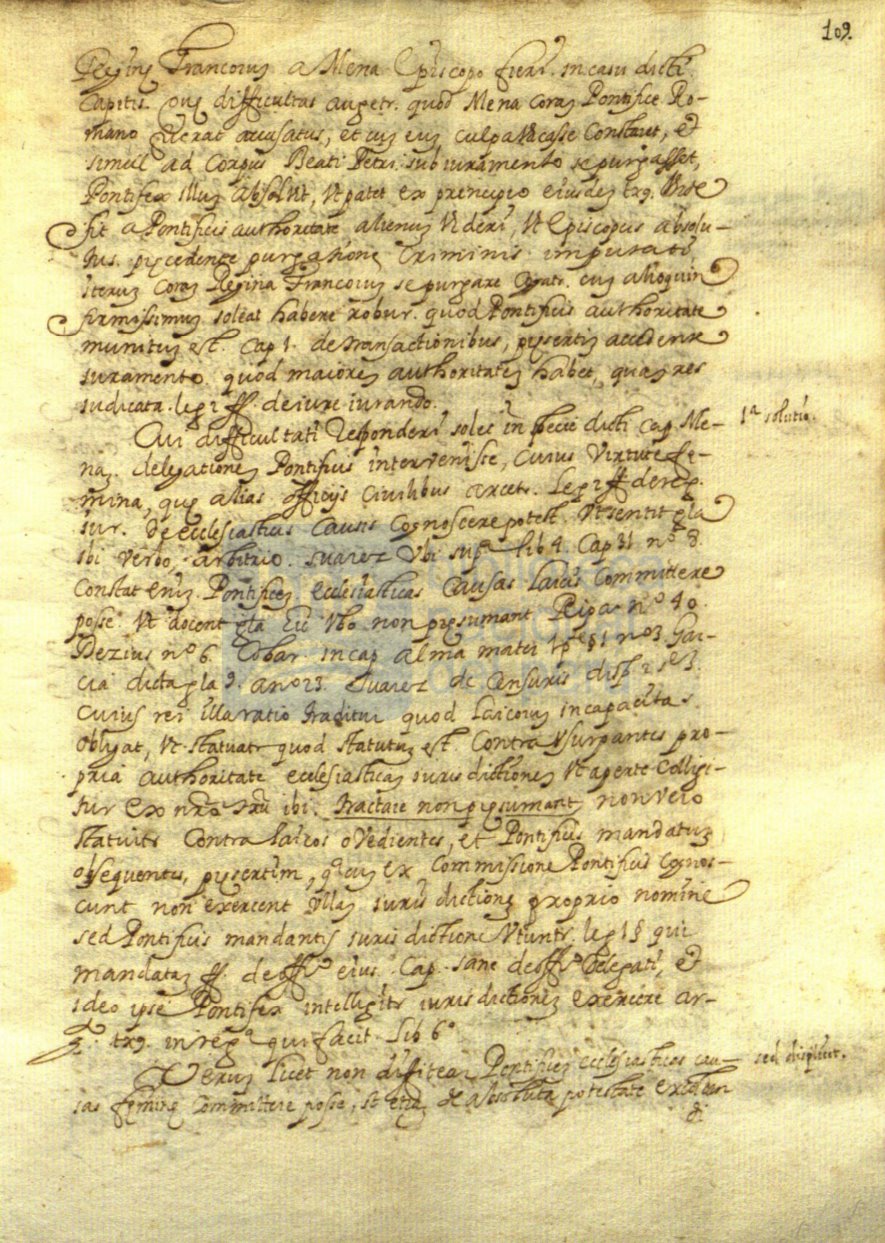 109.
Reginę Francorum a Mena Episcopo fieri. in casu dicti
Capitis. quę difficultas augetr. quod Mena coram Pontifice Ro-
mano erat accusatus, et cum eius culpa Constaret, et
simul ad Corpus Beati Petri sub iuramento se purgasset,
Pontifex illum absolvit, Vt patet ex principio eiusdem txs.
fit a Pontificis authoritate alienum Videri, Vt Episcopus absolu-
tus. pręcedente purgatione Criminis imputati
iterum Coram Regina Francorum se purgare cum alioquin
firmissimum soleat habere robur. quod Pontificis authoritate
munitum est. Cap 1. de transactionibus, pręsertim accedente
iuramento. quod maiorem authoritatem habet, quam res
iudicata. leg 1 ff. de iure iurando.
Cui difficultati Responderi solet in specie dicti Cap. Me-
1ª solutio.
nam. delegationem Pontificis intervenisse, Cuius Virtute fę-
mina, quę alias officijs Civilibus arcetr. Leg 2 ff de reg.
iur. de ecclesiasticis Causis Cognoscere potest. Vt sentit gla
ibi Verbo, arbitrio. Suarez Vbi supª lib 4. Cap 31 nº 8.
Constat enim Pontificem ecclesiasticas Causas laicis Committere
posse Vt docent gla Vbo non pręsumant Ripa nº 40
Dezius nº 6. Cobar. in cap alma mater 1 pte § 1 nº 3 Gar-
cia dicta gla 9. a nº 23. Suarez de Censuris disp 2 se 3.
Cuius rei illa ratio traditur quod laicorum incapacitas
obligat, Vt statuatr quod statutum est. Contra Vsurpantes pro-
pria authoritate ecclesiasticam iuris dictionem Vt aperte Colligi-
tur ex nrō ibi. tractare non pręsumant, non vero
statuits Contra laicos oVedientes, et Pontificis mandatum
obsequentes, pręsertim, cum ex Commissione Pontificis Cognos-
cunt non exercent Vllam iuris dictionem proprio nomine
sed Pontificis mandantis iuris dictione Vtuntr. leg 1 § qui
mandatam ff. de offº eius. Cap. sane de offº Delegati, et
ideo ipse Pontifex intelligitr iuris dictionem exercere ar-
g. txs. in regª qui facit. Lib 6º
Verum licet non difitear Pontificem ecclesiasticas cau-
sed displicet.
sas fęminę Committere posse, absoluta potestate